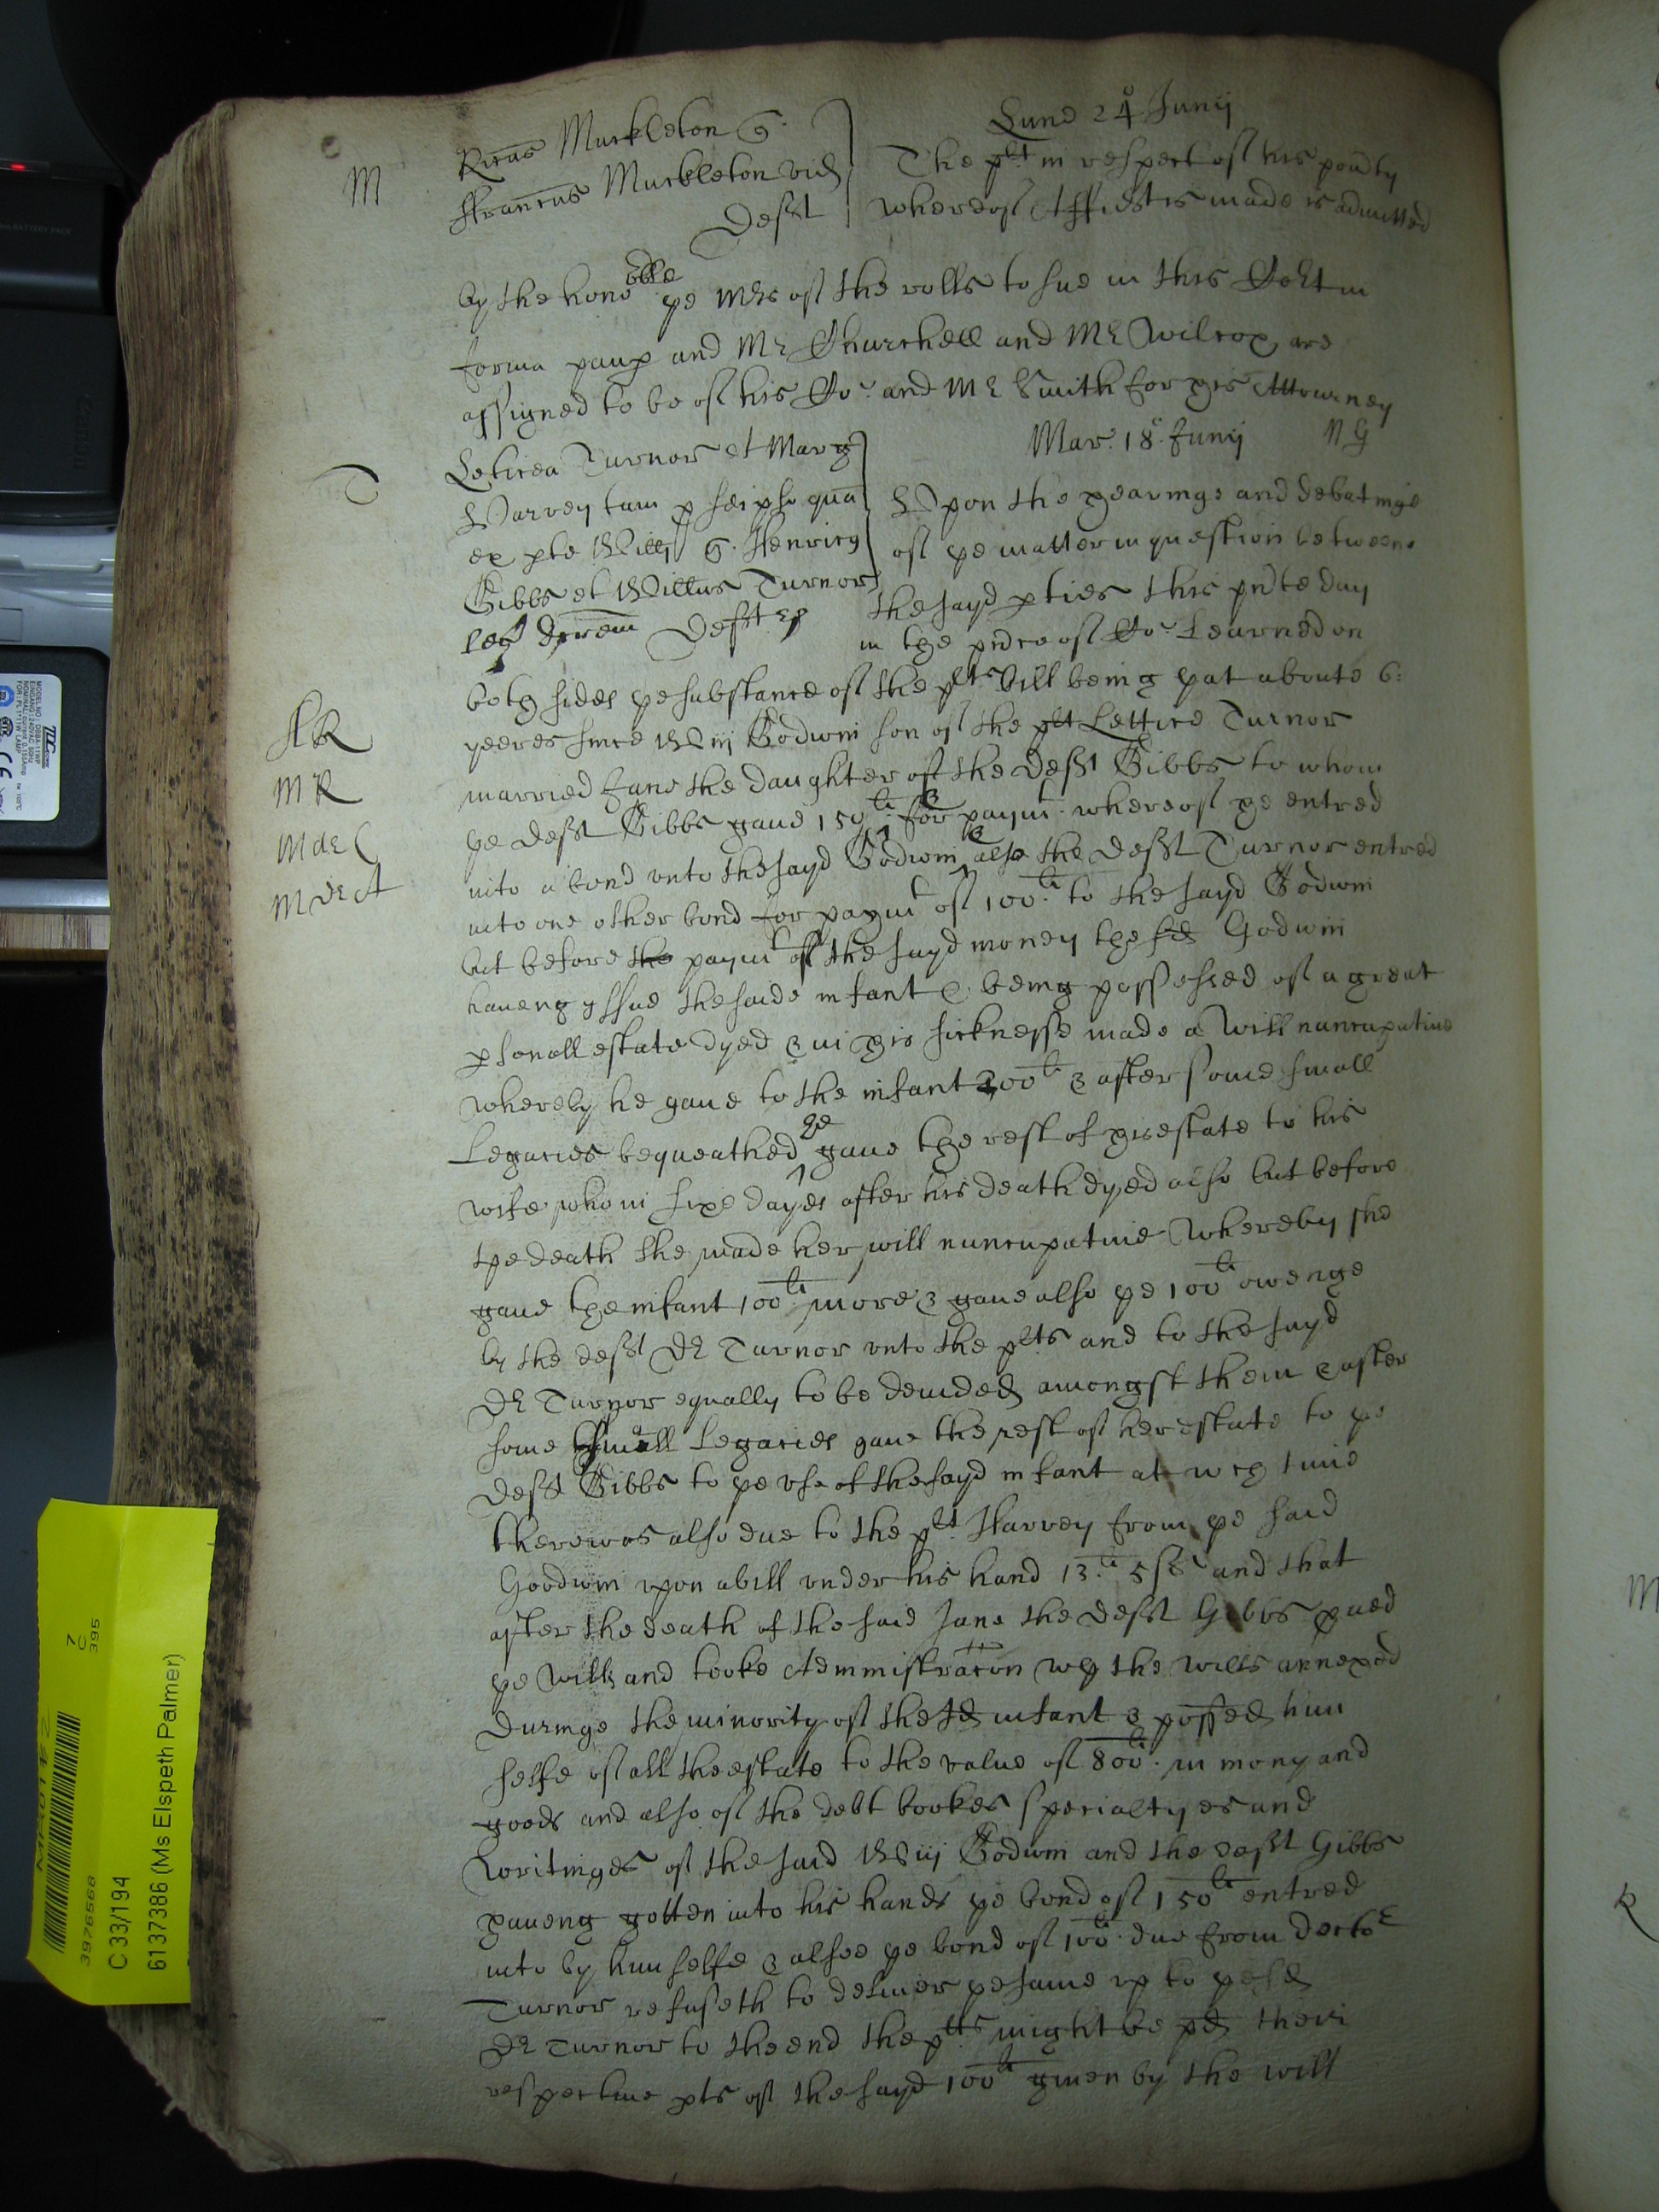 Lune 24º Junij
M
Ricus Muckleton q.
Francus Muckleton vid
Deft
The plt in respect of his povty
whereof Affidt is made is admitted
by the honoble ye Mr of the rolls to sue in this Cort in
forma paup and Mr Churchell and Mr Wilcox are
assigned to be of his Co. and Mr Smith for his Attourney
Mar. 18º Junij NG
T
Leticea Turnor et Marg
Harvey tam p seipso qua
ex pte Willi G. Henricus
Gibbs et Willus Turnor
leg doctrem Deftes
Upon the hearinge and debatinge
of ye matter in question betweene
the sayd pties this pnte day
in the pnce of Co. Learned on
both sides ye substance of the plts bill being yat aboute 6:
yeeres since Wm Godwin son of the plt Lettice Turnor
married Jane the daughter of the Deft Gibbs to whom
ye Deft Gibbs gaue 150li. for paymt. whereof he entred
into a bond vnto the sayd Godwin & also the Deft Turnor entred
into one other bond for paymt of 100li. to the sayd Godwin
but before the paymt of the sayd money the sd Godwin
haueng yssue the saide infant & being possessed of a great
psonall estate dyed & in his sicknesse made a Will nuncupatiue
whereby he gaue to the infant 200li & after some small
Legacies bequeathed he gaue the rest of his estate to his
wife who in sixe dayes after his death dyed also but before
the death she made her will nuncupatiue Whereby she
gaue the infant 100li. more & gaue also ye 100li owenge
by the deft Dr Turnor vnto the plts and to the sayd
Dr Turnor equally to be deuided amongst them & after
some small Legacies gaue the rest of her estate to ye
Deft Gibbs to ye vse of the sayd infant at wch time
there was also due to the plt Harvey from ye said
Goodwin vpon a bill vnder his hand 13li 5ss and that
after the death of the said Jane the Deft Gibbs pued
ye Wills and tooke Administracon wth the wills annexed
Duringe the minority of the sd infant & possed him
selfe of all the estate to the value of 800li. in mony and
goods and also of the debt bookes specialtyes and
Writinges of the said Wm Godwin and the deft Gibbs
haueng gotten into his hands ye bond of 150li entred
into by himselfe & alsoe ye bond of 100li due from doctor
Turnor refuseth to deliuer ye same vp to ye sd
Dr Turnor to the end the plts might be pd their
respectiue pts of the sayd 100li giuen by the will
AR
MR
M de C
M de A
C 33/194
6137386 (Ms Elspeth Palmer)
3976568
7
C
395